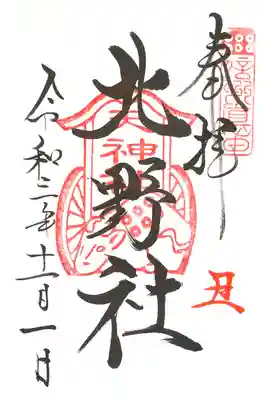 奉拝
丑
北野社
神
令和三年十一月一日